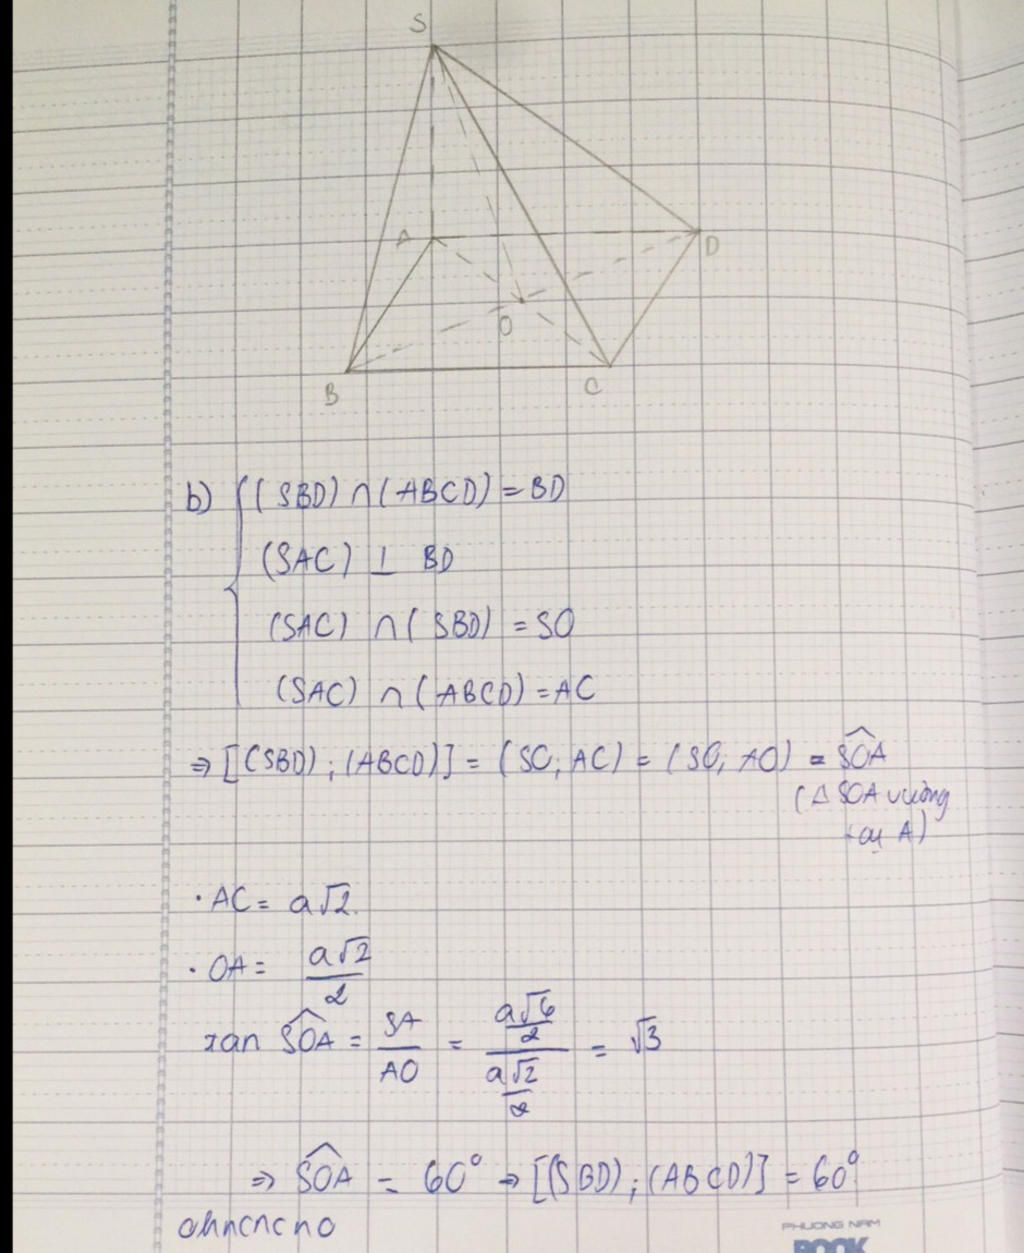 S
A
D
O
B
C
b) { (SBD) ∩ (ABCD) = BD
(SAC) ⊥ BD
(SAC) ∩ (SBD) = SO
(SAC) ∩ (ABCD) = AC
⇒ [(SBD) ; (ABCD)] = (SO, AC) = (SO, AO) = \widehat{SOA}
(△ SOA vuông
tại A)
· AC = a√2
· OA = \frac{a√2}{2}
tan \widehat{SOA} = \frac{SA}{AO} = \frac{\frac{a√6}{2}}{\frac{a√2}{2}} = √3
⇒ \widehat{SOA} = 60° ⇒ [(SBD) ; (ABCD)] = 60°
PHUONG NAM
BOOK